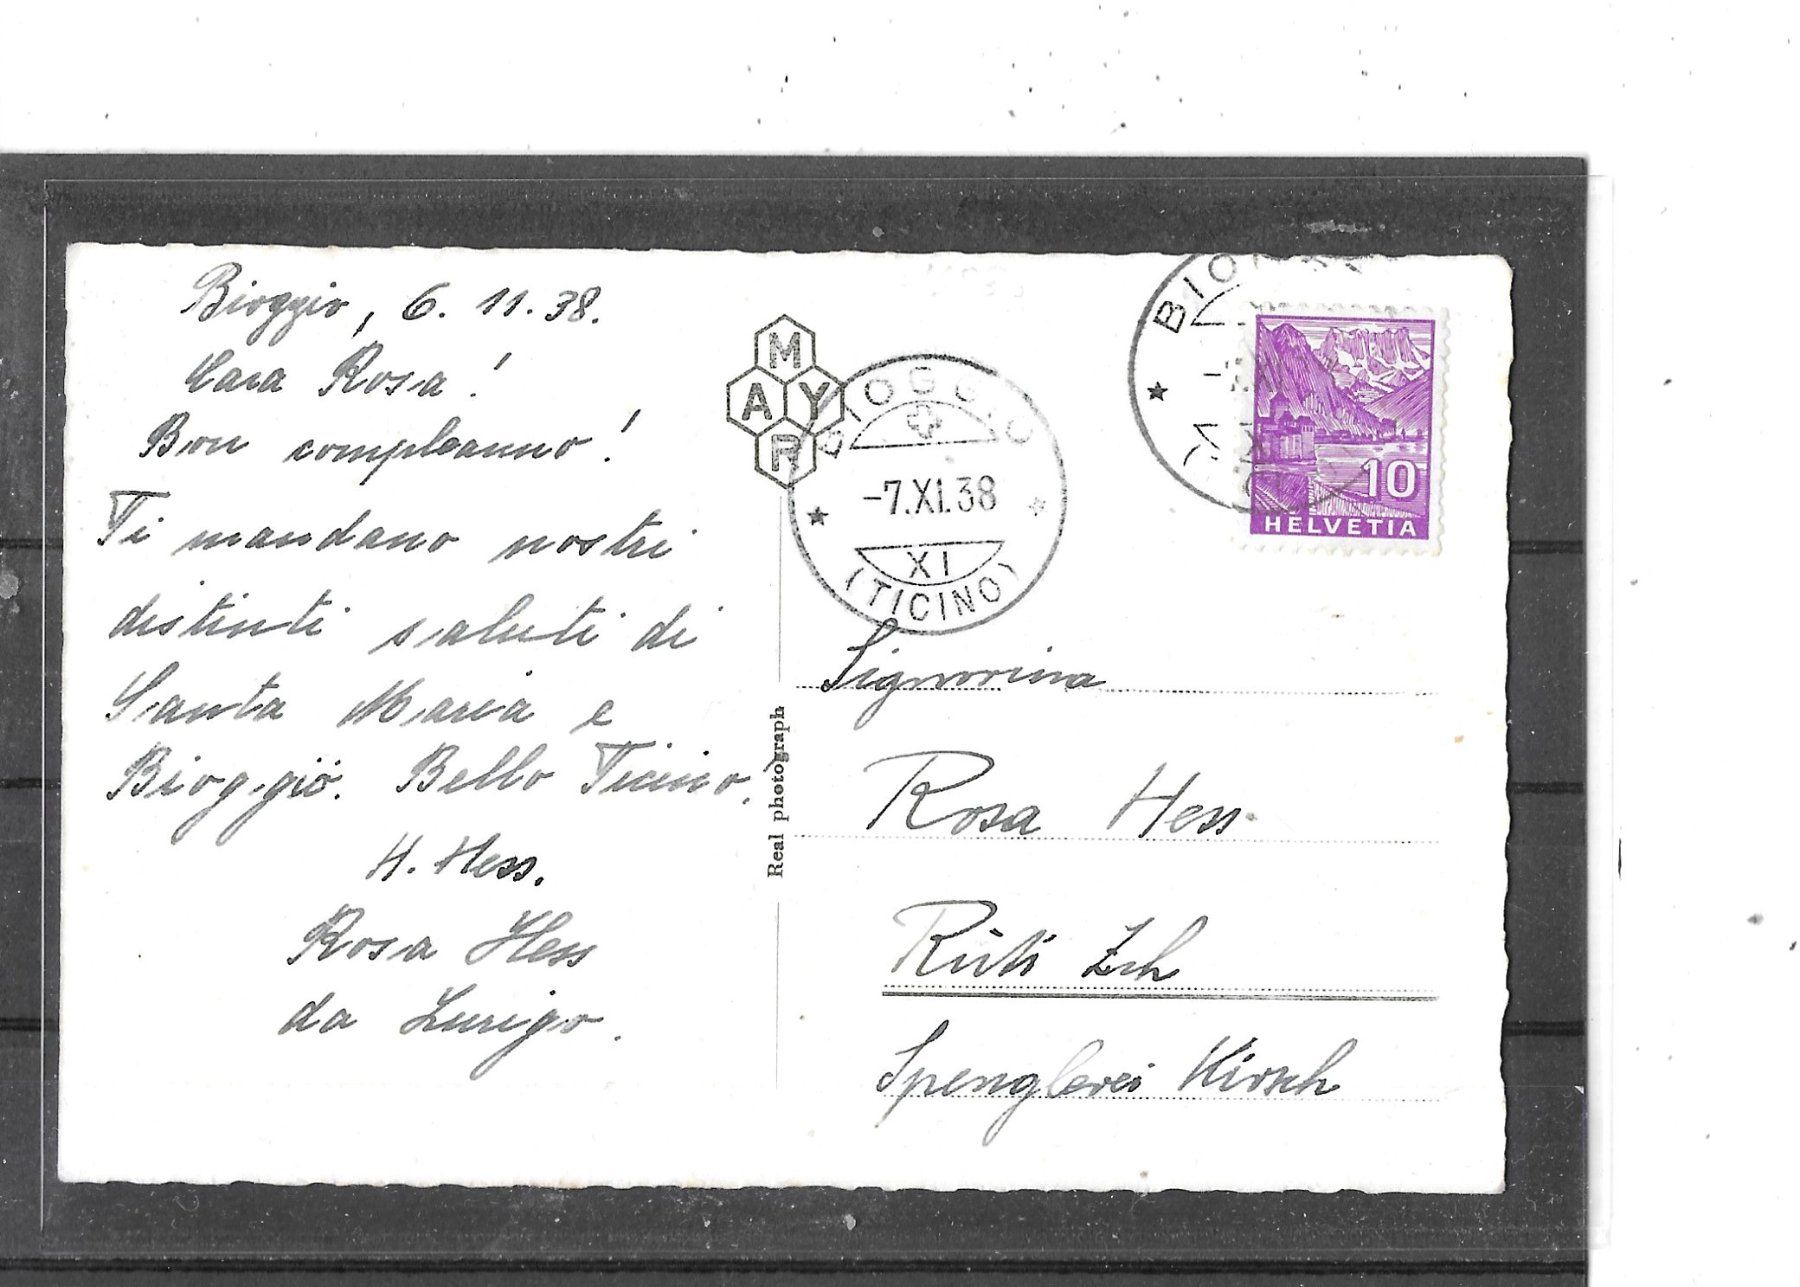 Bioggio, 6. 11. 38.
Cara Rosa!
Bon compleanno!
Ti mandano nostri
distinti saluti di
Santa Maria e
Bioggio. Bello Ticino.
H. Hess.
Rosa Hess
da Zurigo.
MAYR
Real photograph
BIOGGIO
-7.XI.38
XI
(TICINO)
BIO
10
HELVETIA
Signorina
Rosa Hess
Rüti Zch
Spenglerei Kirsch